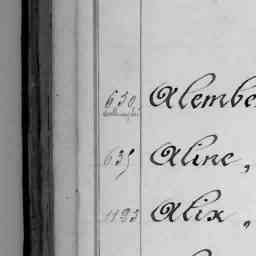 650, Alembe
635 Aline,
1193 Alix,